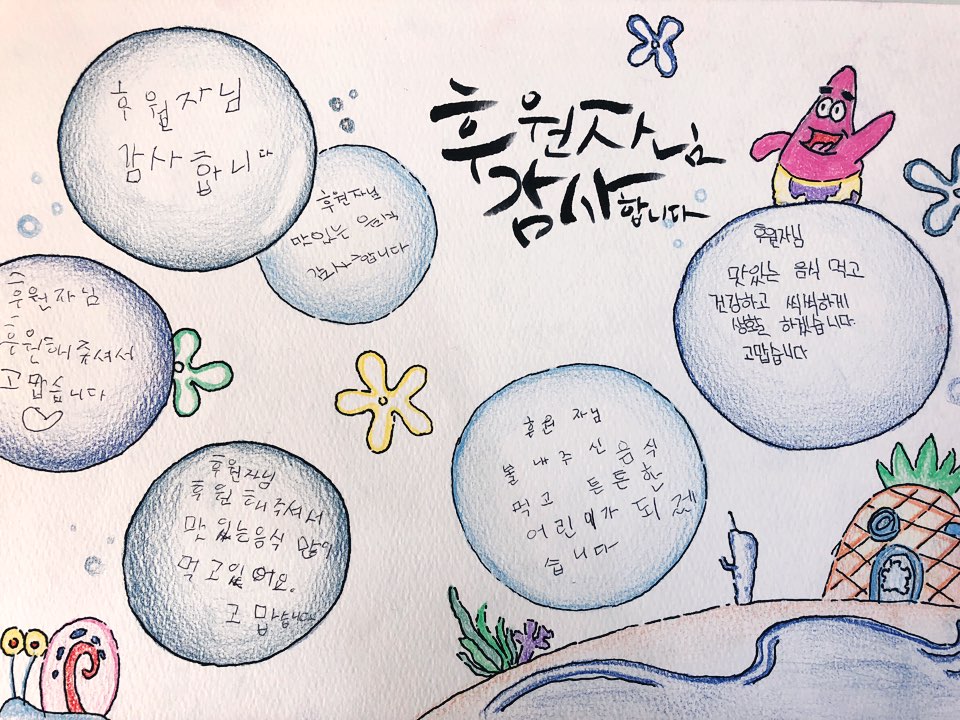 후원자님
감사합니다
후원자님
감사합니다
후원자님
맛있는 음식
감사합니다
후원자님
맛있는 음식 먹고
건강하고 씩씩하게
생활 하겠습니다.
고맙습니다
후원자님
후원해 주셔서
고맙습니다
후원 자님
보내주신 음식
먹고 튼튼한
어린이가 되겠
습니다
후원자님
후원해주셔서
맛있는음식 많이
먹고있어요.
고맙습니다